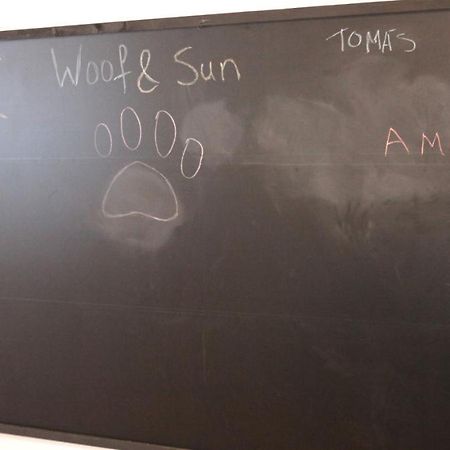 Woof & Sun
TOMAS
AM